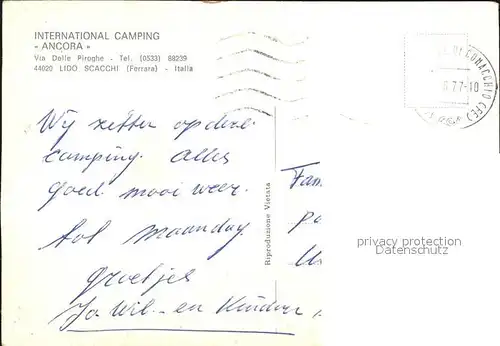 INTERNATIONAL CAMPING
« ANCORA »
Via Delle Piroghe - Tel. (0533) 88239
44020 LIDO SCACCHI (Ferrara) - Italia
Wij zitten op deze
camping. alles
goed mooi weer.
tot maandag.
groetjes
Wil en Kinderen
Riproduzione Vietata
COMACCHIO (FE)
77-10
Fam
privacy protection
Datenschutz